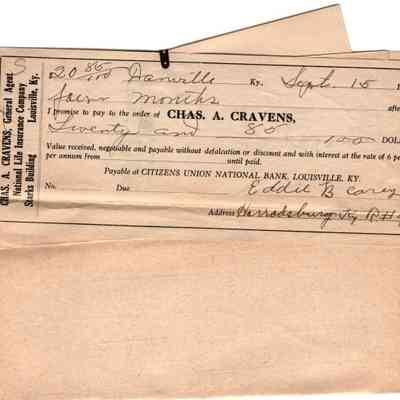 CHAS. A. CRAVENS, General Agent
National Life Insurance Company
Starks Building Louisville, Ky.
S
$20 85/100 Danville Ky. Sept. 15
Four Months afte
I promise to pay to the order of CHAS. A. CRAVENS,
Twenty and 85 100 DOL
Value received, negotiable and payable without defalcation or discount and with interest at the rate of 6 pe
per annum from until paid.
Payable at CITIZENS UNION NATIONAL BANK, LOUISVILLE, KY.
No. Due Eddie B Corey
Address Harrodsburg Ky R H